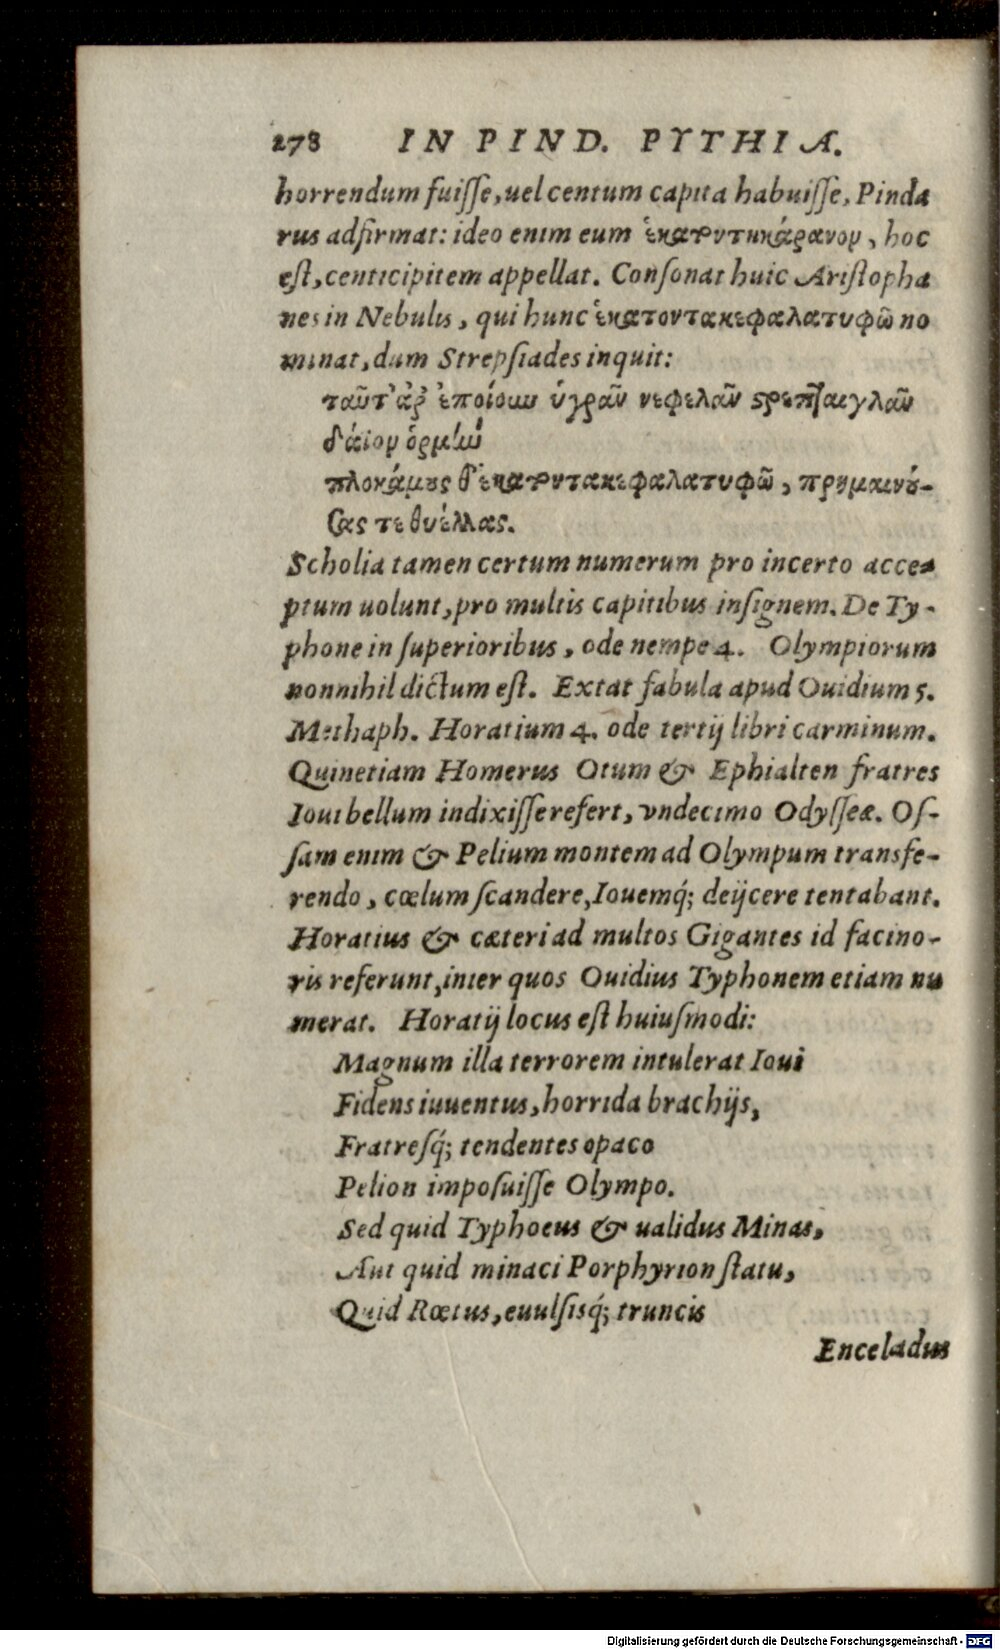 278 IN PIND. PYTHIA.
horrendum fuiſſe, uel centum capita habuiſſe, Pinda
rus adfirmat: ideo enim eum ἑκατοντακάρανον, hoc
eſt, centicipitem appellat. Conſonat huic Ariſtopha
nes in Nebulis, qui hunc ἑκατοντακεφαλατυφῶ no
minat, dum Strepſiades inquit:
ταῦτ' ἀρ' ἐποίουν ὑγρᾶν νεφελᾶν στρεπταιγλᾶν
δάϊον ὁρμὴν
πλοκάμους θ' ἑκατοντακεφαλατυφῶ, πρημαινού-
σας τε θυέλλας.
Scholia tamen certum numerum pro incerto acce-
ptum uolunt, pro multis capitibus inſignem. De Ty-
phone in ſuperioribus, ode nempe 4. Olympiorum
nonnihil dictum eſt. Extat fabula apud Ouidium 5.
Methaph. Horatium 4. ode tertij libri carminum.
Quinetiam Homerus Otum & Ephialten fratres
Ioui bellum indixiſſe refert, vndecimo Odyſſeæ. Oſ-
ſam enim & Pelium montem ad Olympum transfe-
rendo, cœlum ſcandere, Iouemq́; deijcere tentabant.
Horatius & cæteri ad multos Gigantes id facino-
ris referunt, inter quos Ouidius Typhonem etiam nu
merat. Horatij locus eſt huiuſmodi:
Magnum illa terrorem intulerat Ioui
Fidens iuuentus, horrida brachijs,
Fratreſq́; tendentes opaco
Pelion impoſuiſſe Olympo.
Sed quid Typhoeus & ualidus Mimas,
Aut quid minaci Porphyrion ſtatu,
Quid Rœtus, euulſisq́; truncis
Enceladus
Digitalisierung gefördert durch die Deutsche Forschungsgemeinschaft - DFG